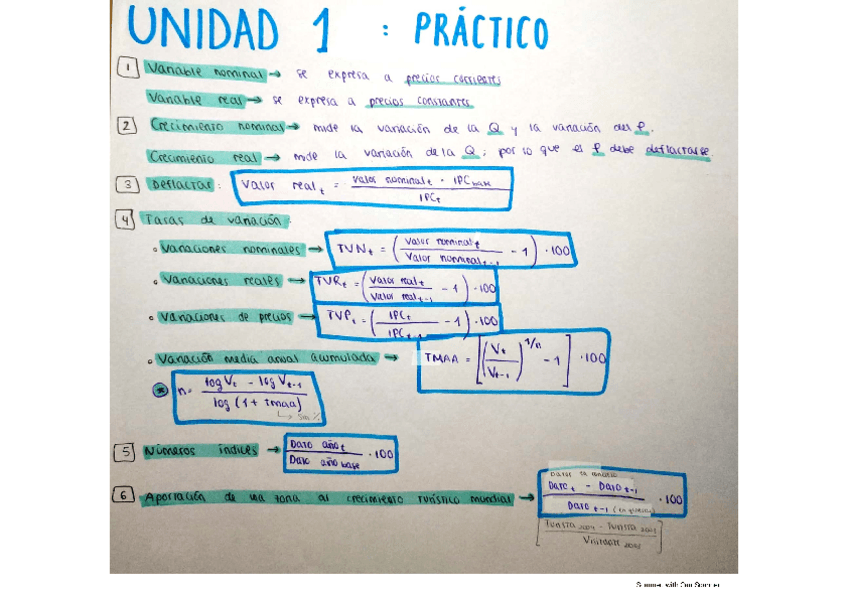 UNIDAD 1 : PRÁCTICO
1 Variable nominal → se expresa a precios corrientes
Variable real → se expresa a precios constantes
2 Crecimiento nominal → mide la variación de la Q y la variación del P.
Crecimiento real → mide la variación de la Q; por lo que el P debe deflactarse.
3 Deflactar: Valor real t = Valor nominal t · IPC base / IPC t
4 Tasas de variación:
• Variaciones nominales → TVN t = (Valor nominal t / Valor nominal t-1 - 1) · 100
• Variaciones reales → TVR t = (Valor real t / Valor real t-1 - 1) · 100
• Variaciones de precios → TVP t = (IPC t / IPC t-1 - 1) · 100
• Variación media anual acumulada → TMAA = [(Vt / Vt-1)^1/n - 1] · 100
* n = log Vt - log Vt-1 / log (1 + tmaa)
↳ sin %
5 Números índices → Dato año t / Dato año base · 100
6 Aportación de una zona al crecimiento turístico mundial → Dato t - Dato t-1 / Dato t-1 · 100